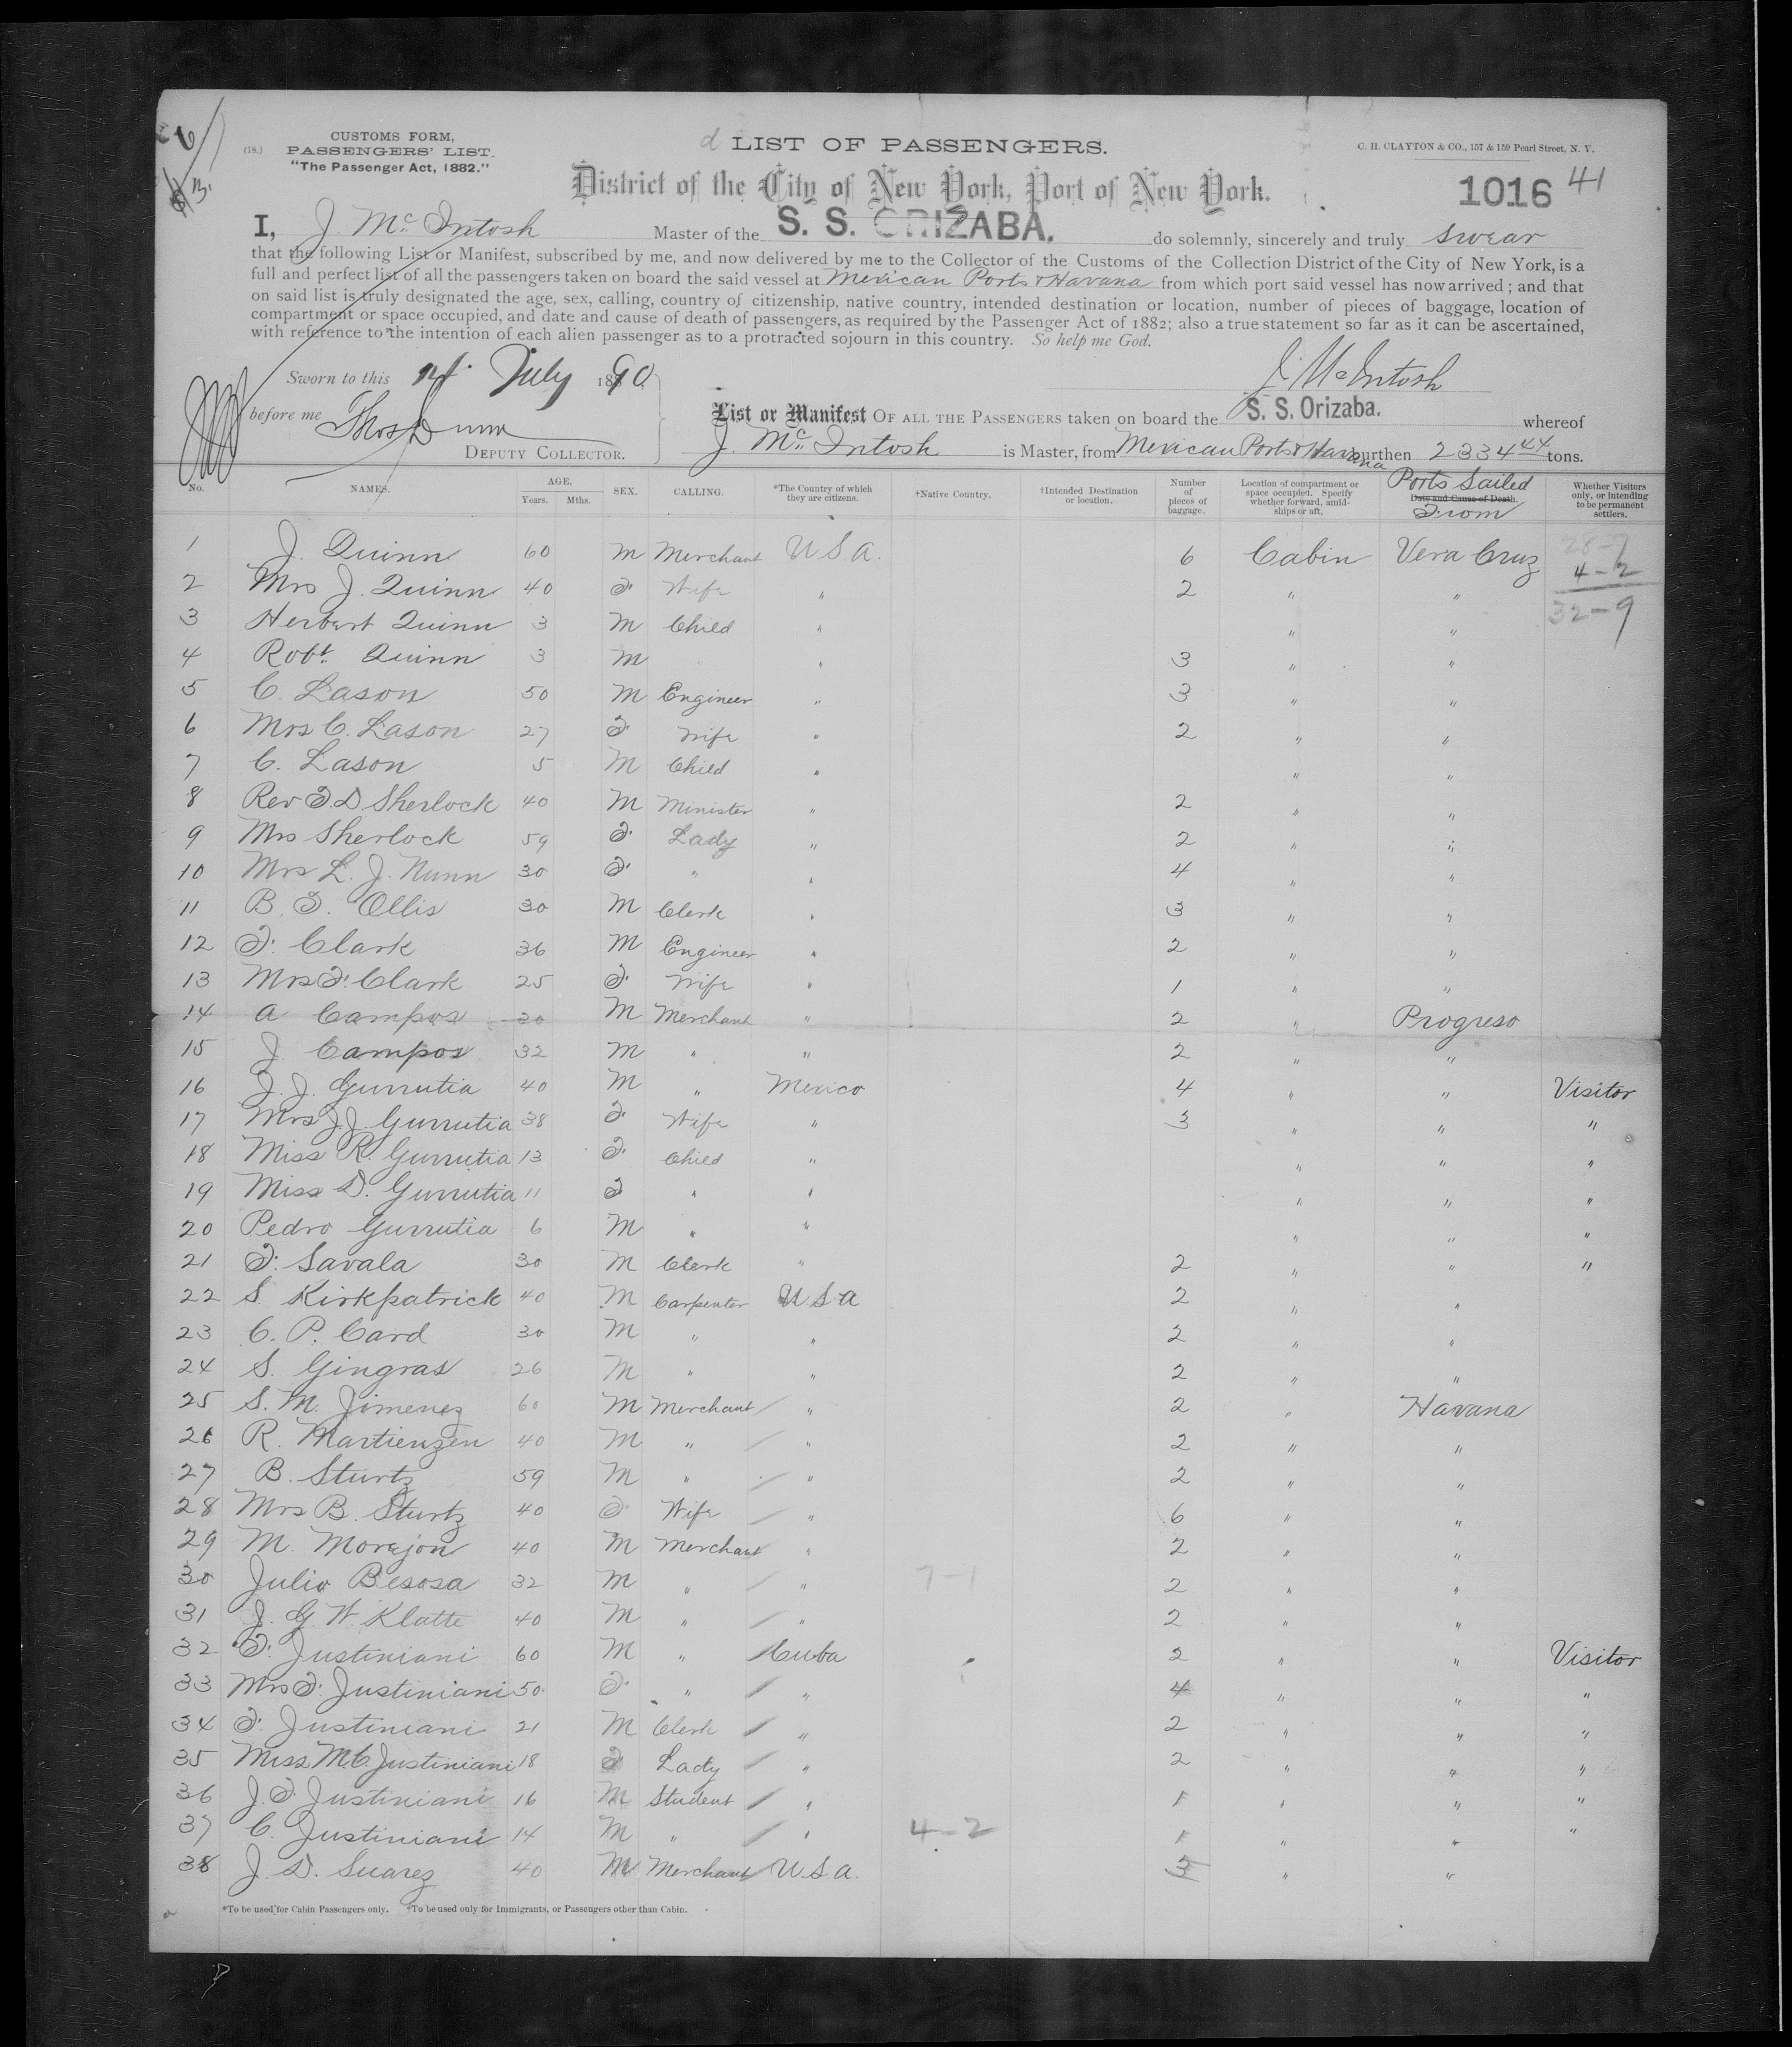 CUSTOMS FORM,
(18.) PASSENGERS' LIST.
"The Passenger Act, 1882."
LIST OF PASSENGERS.
C. H. CLAYTON & CO., 157 & 159 Pearl Street, N. Y.
District of the City of New York, Port of New York.
1016 41
I, J. McIntosh Master of the S. S. ORIZABA. do solemnly, sincerely and truly swear
that the following List or Manifest, subscribed by me, and now delivered by me to the Collector of the Customs of the Collection District of the City of New York, is a
full and perfect list of all the passengers taken on board the said vessel at Mexican Ports & Havana from which port said vessel has now arrived; and that
on said list is truly designated the age, sex, calling, country of citizenship, native country, intended destination or location, number of pieces of baggage, location of
compartment or space occupied, and date and cause of death of passengers, as required by the Passenger Act of 1882; also a true statement so far as it can be ascertained,
with reference to the intention of each alien passenger as to a protracted sojourn in this country. So help me God.
Sworn to this July 1890
J. McIntosh
before me Thos Dunn
DEPUTY COLLECTOR.
List or Manifest OF ALL THE PASSENGERS taken on board the S. S. Orizaba. whereof
J. McIntosh is Master, from Mexican Ports & Havana burthen 2334 44 tons.
No. NAMES. AGE. Years. Mths. SEX. CALLING. *The Country of which they are citizens. †Native Country. †Intended Destination or location. Number of pieces of baggage. Location of compartment or space occupied. Specify whether forward, amidships or aft. Date and Cause of Death. Ports Sailed From Whether Visitors only, or intending to be permanent settlers.
1 J. Quinn 60 M Merchant U.S.A. 6 Cabin Vera Cruz 28-7
2 Mrs J. Quinn 40 F. Wife " 2 " " 4-2
3 Herbert Quinn 3 M Child " " " 32-9
4 Robt. Quinn 3 M " " 3 " "
5 C. Lason 50 M Engineer " 3 " "
6 Mrs C. Lason 27 F. Wife " 2 " "
7 C. Lason 5 M Child " " "
8 Rev F.D. Sherlock 40 M Minister " 2 " "
9 Mrs Sherlock 59 F. Lady " 2 " "
10 Mrs L. J. Nunn 30 F. " " 4 " "
11 B. F. Ollis 30 M Clerk " 3 " "
12 F. Clark 36 M Engineer " 2 " "
13 Mrs F. Clark 25 F. Wife " 1 " "
14 A Campos 30 M Merchant " 2 " Progreso
15 J. Campos 32 M " " 2 " "
16 J. J. Gurrutia 40 M " Mexico 4 " " Visitor
17 Mrs J.J. Gurrutia 38 F. Wife " 3 " " "
18 Miss R. Gurrutia 13 F. Child " " " "
19 Miss D. Gurrutia 11 F " " " " "
20 Pedro Gurrutia 6 M " " " " "
21 F. Savala 30 M Clerk " 2 " " "
22 S. Kirkpatrick 40 M Carpenter U.S.A 2 " "
23 C. P. Card 30 M " " 2 " "
24 S. Gingras 26 M " " 2 " "
25 S. M. Jimenez 60 M Merchant " 2 " Havana
26 R. Martienzen 40 M " " 2 " "
27 B. Sturtz 59 M " " 2 " "
28 Mrs B. Sturtz 40 F. Wife " 6 " "
29 M. Morejon 40 M Merchant " 2 " "
30 Julio Besosa 32 M " " 7-1 2 " "
31 J. G. W. Klatte 40 M " " 2 " "
32 F. Justiniani 60 M " Cuba 2 " " Visitor
33 Mrs F. Justiniani 50 F. " " 4 " " "
34 F. Justiniani 21 M Clerk " 2 " " "
35 Miss M.C. Justiniani 18 F Lady " 2 " " "
36 J. F. Justiniani 16 M Student " 1 " " "
37 C. Justiniani 14 M " " 4-2 1 " " "
38 J. D. Suarez 40 M Merchant U.S.A. 3 " "
*To be used for Cabin Passengers only. †To be used only for Immigrants, or Passengers other than Cabin.